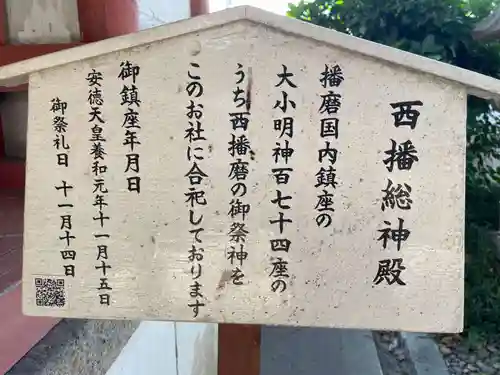 西播総神殿
播磨国内鎮座の
大小明神百七十四座の
うち西播磨の御祭神を
このお社に合祀しております
御鎮座年月日
安徳天皇養和元年十一月十五日
御祭礼日 十一月十四日